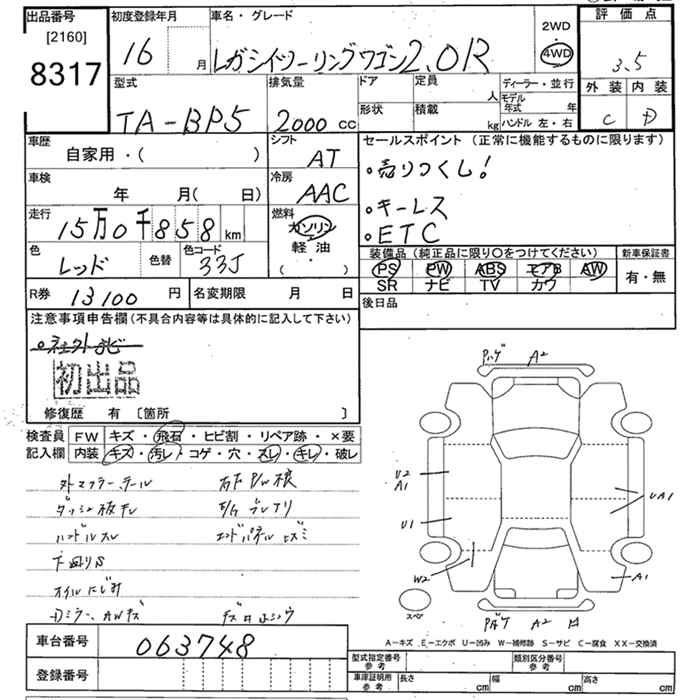 出品番号
[2160]
8317
初度登録年月
16 月
車名・グレード
レガシィツーリングワゴン2.0R
2WD
4WD
評価点
3.5
外装 内装
C D
型式
TA-BP5
排気量
2000 cc
ドア
形状
定員
人
積載
kg
ディーラー・並行
モデル年式 年
ハンドル 左・右
車歴
自家用・( )
シフト
AT
車検
年 月( 日)
冷房
AAC
走行
15万0千858 km
燃料
ガソリン
軽油
( ・ )
色
レッド
色替
色コード
33J
R券 13100 円
名変期限 月 日
セールスポイント (正常に機能するものに限ります)
・売りつくし!
・キーレス
・ETC
装備品 (純正品に限り○をつけてください)
新車保証書
PS PW ABS エアB AW
SR ナビ TV カワ
有・無
後日品
注意事項申告欄 (不具合内容等は具体的に記入して下さい)
初出品
修復歴 有 [箇所 ]
検査員
記入欄
FW キズ・飛石・ヒビ割・リペア跡・×要
内装 キズ・汚レ・コゲ・穴・スレ・キレ・破レ
外マフラー、テール
ダッシュ板キレ
ハンドルスレ
エンドパネルヒズミ
下回りS
オイルにじみ
Dミラー、AWキズ
パハゲ A2
U2
A1
U1
UA1
W2
A1
スペア
A2
A-キズ E-エクボ U-凹み W-補修跡 S-サビ C-腐食 XX-交換済
車台番号 063748
登録番号
型式指定番号
参考
類別区分番号
参考
車庫証明用
参考
長さ cm
幅 cm
高さ cm